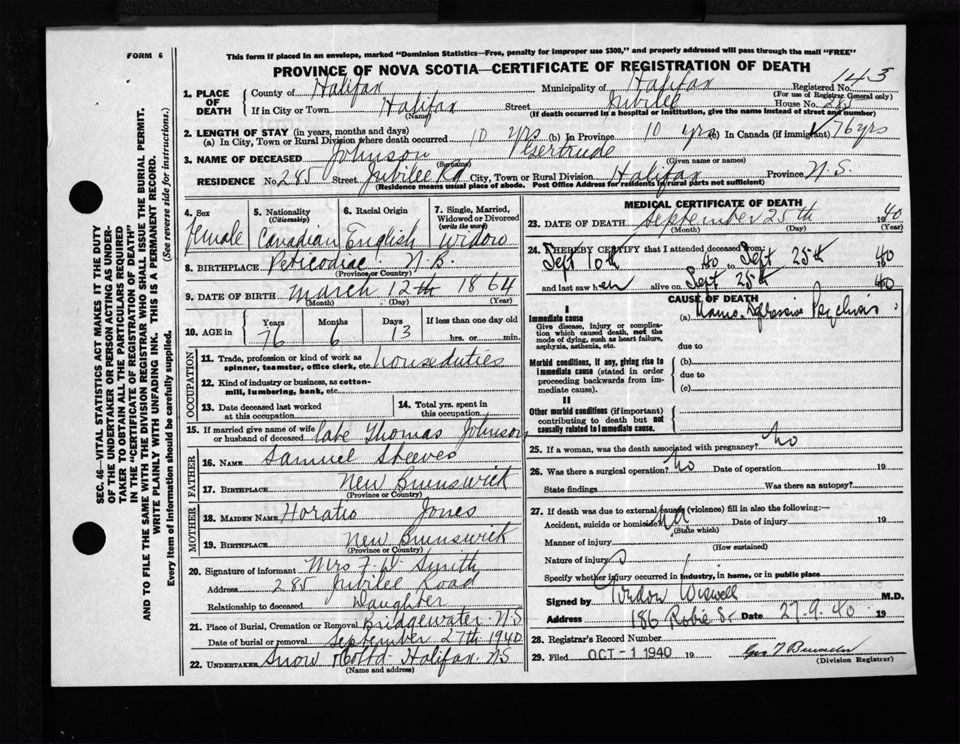 FORM 6
This form if placed in an envelope, marked "Dominion Statistics—Free, penalty for improper use $300," and properly addressed will pass through the mail "FREE"
PROVINCE OF NOVA SCOTIA—CERTIFICATE OF REGISTRATION OF DEATH
143
SEC. 46—VITAL STATISTICS ACT MAKES IT THE DUTY
OF THE UNDERTAKER OR PERSON ACTING AS UNDER-
TAKER TO OBTAIN ALL THE PARTICULARS REQUIRED
IN THE "CERTIFICATE OF REGISTRATION OF DEATH"
AND TO FILE THE SAME WITH THE DIVISION REGISTRAR WHO SHALL ISSUE THE BURIAL PERMIT.
WRITE PLAINLY WITH UNFADING INK. THIS IS A PERMANENT RECORD.
Every item of information should be carefully supplied. (See reverse side for instructions.)
1. PLACE OF DEATH
County of Halifax Municipality of Halifax Registered No.
(For use of Registrar General only)
If in City or Town Halifax Street Jubilee House No. 285
(Name) (If death occurred in a hospital or institution, give the name instead of street and number)
2. LENGTH OF STAY (in years, months and days)
(a) In City, Town or Rural Division where death occurred 10 yrs (b) In Province 10 yrs (c) In Canada (if immigrant) 76 yrs
3. NAME OF DECEASED Johnson Gertrude
(Surname) (Given name or names)
RESIDENCE No. 285 Street Jubilee Rd City, Town or Rural Division Halifax Province N.S.
(Residence means usual place of abode. Post Office Address for residents in rural parts not sufficient)
4. Sex
female
5. Nationality
(Citizenship)
Canadian
6. Racial Origin
English
7. Single, Married,
Widowed or Divorced
(write the word)
Widow
8. BIRTHPLACE Peticodiac N.B.
(Province or Country)
9. DATE OF BIRTH March 12th 1864
(Month) (Day) (Year)
10. AGE in Years Months Days If less than one day old
76 6 13 hrs. or min.
OCCUPATION
11. Trade, profession or kind of work as
spinner, teamster, office clerk, etc. house duties
12. Kind of industry or business, as cotton-
mill, lumbering, bank, etc.
13. Date deceased last worked
at this occupation
14. Total yrs. spent in
this occupation
15. If married give name of wife
or husband of deceased late Thomas Johnson
FATHER
16. NAME Samuel Steeves
17. BIRTHPLACE New Brunswick
(Province or Country)
MOTHER
18. MAIDEN NAME Horatio Jones
19. BIRTHPLACE New Brunswick
(Province or Country)
20. Signature of informant Mrs F. D. Smith
Address 285 Jubilee Road
Relationship to deceased Daughter
21. Place of Burial, Cremation or Removal Bridgewater N.S
Date of burial or removal September 27th 1940
22. UNDERTAKER Snow & Co Ltd. Halifax. NS
(Name and address)
MEDICAL CERTIFICATE OF DEATH
23. DATE OF DEATH September 25th 1940
(Month) (Day) (Year)
24. I HEREBY CERTIFY that I attended deceased from:
Sept 10th 40 to Sept 25th 40
and last saw her alive on Sept 25th 40
CAUSE OF DEATH
I
Immediate cause
Give disease, injury or complica-
tion which caused death, not the
mode of dying, such as heart failure,
asphyxia, asthenia, etc.
(a) Manic Depressive Psychosis
due to
Morbid conditions, if any, giving rise to
immediate cause (stated in order
proceeding backwards from im-
mediate cause).
(b)
due to
(c)
II
Other morbid conditions (if important)
contributing to death but not
causally related to immediate cause.
25. If a woman, was the death associated with pregnancy? no
26. Was there a surgical operation? no Date of operation 19
State findings Was there an autopsy?
27. If death was due to external causes (violence) fill in also the following:—
Accident, suicide or homicide Date of injury 19
(State which)
Manner of injury
(How sustained)
Nature of injury
Specify whether injury occurred in industry, in home, or in public place
Signed by Gordon Wiswell M.D.
Address 186 Robie St Date 27.9.40 19
28. Registrar's Record Number
29. Filed OCT -1 1940 19
(Division Registrar)